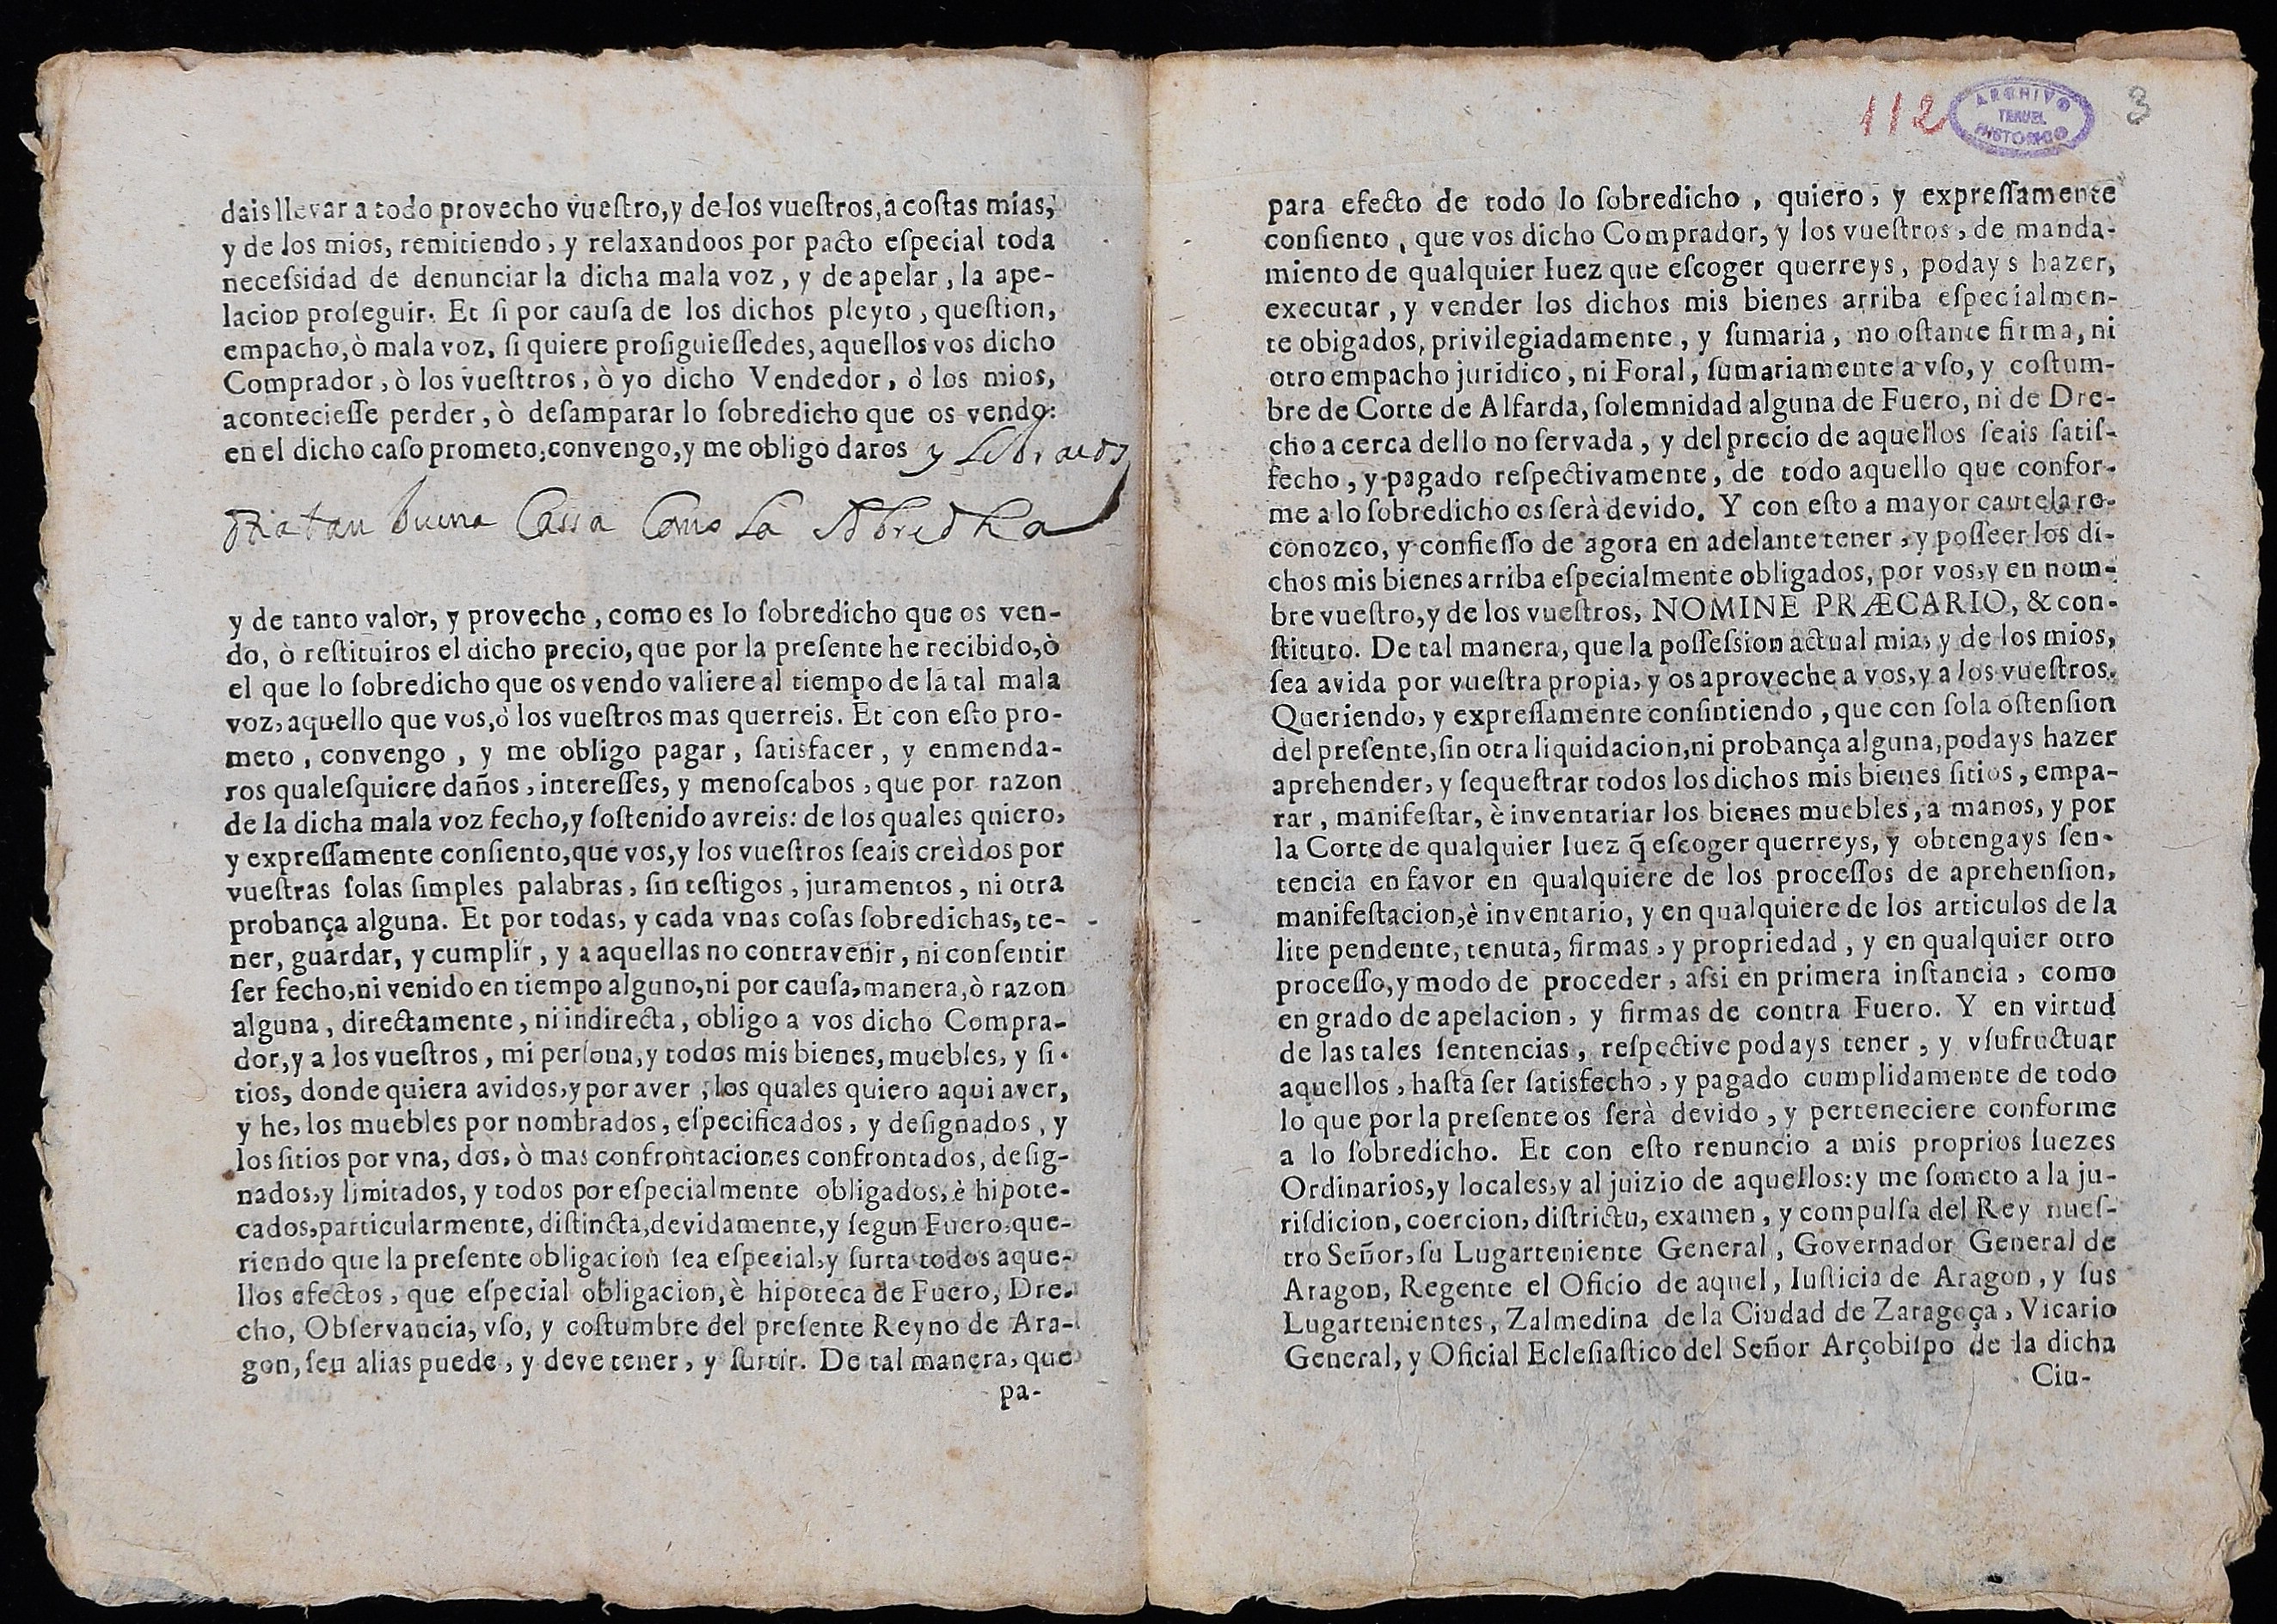 dais llevar a todo provecho vuestro, y de los vuestros, a costas mias,
y de los mios, remitiendo, y relaxandoos por pacto especial toda
necessidad de denunciar la dicha mala voz, y de apelar, la ape-
lacion proseguir. Et si por causa de los dichos pleyto, question,
empacho, ò mala voz, si quiere prosiguiessedes, aquellos vos dicho
Comprador, ò los vuestros, ò yo dicho Vendedor, ò los mios,
aconteciesse perder, ò desamparar lo sobredicho que os vendo:
en el dicho caso prometo, convengo, y me obligo daros y libraros
otra tan buena Cassa Como la sobredha
y de tanto valor, y provecho, como es lo sobredicho que os ven-
do, ò restituiros el dicho precio, que por la presente he recibido, ò
el que lo sobredicho que os vendo valiere al tiempo de la tal mala
voz, aquello que vos, ò los vuestros mas querreis. Et con esto pro-
meto, convengo, y me obligo pagar, satisfacer, y enmenda-
ros qualesquiere daños, interesses, y menoscabos, que por razon
de la dicha mala voz fecho, y sostenido avreis: de los quales quiero,
y expressamente consiento, que vos, y los vuestros seais creìdos por
vuestras solas simples palabras, sin testigos, juramentos, ni otra
probança alguna. Et por todas, y cada vnas cosas sobredichas, te-
ner, guardar, y cumplir, y a aquellas no contravenir, ni consentir
ser fecho, ni venido en tiempo alguno, ni por causa, manera, ò razon
alguna, directamente, ni indirecta, obligo a vos dicho Compra-
dor, y a los vuestros, mi persona, y todos mis bienes, muebles, y si-
tios, donde quiera avidos, y por aver, los quales quiero aqui aver,
y he, los muebles por nombrados, especificados, y designados, y
los sitios por vna, dos, ò mas confrontaciones confrontados, desig-
nados, y limitados, y todos por especialmente obligados, è hipote-
cados, particularmente, distincta, devidamente, y segun Fuero, que-
riendo que la presente obligacion sea especial, y surta todos aque-
llos efectos, que especial obligacion, è hipoteca de Fuero, Dre-
cho, Observancia, vso, y costumbre del presente Reyno de Ara-
gon, seu alias puede, y deve tener, y surtir. De tal manera, que
pa-
112
ARCHIVO
TERUEL
HISTORICO
3
para efecto de todo lo sobredicho, quiero, y expressamente
consiento, que vos dicho Comprador, y los vuestros, de manda-
miento de qualquier Iuez que escoger querreys, podays hazer,
executar, y vender los dichos mis bienes arriba especialmen-
te obigados, privilegiadamente, y sumaria, no ostante firma, ni
otro empacho juridico, ni Foral, sumariamente a vso, y costum-
bre de Corte de Alfarda, solemnidad alguna de Fuero, ni de Dre-
cho a cerca dello no servada, y del precio de aquellos seais satis-
fecho, y pagado respectivamente, de todo aquello que confor-
me a lo sobredicho os serà devido. Y con esto a mayor cautela re-
conozco, y confiesso de agora en adelante tener, y posseer los di-
chos mis bienes arriba especialmente obligados, por vos, y en nom-
bre vuestro, y de los vuestros, NOMINE PRÆCARIO, & con-
stituto. De tal manera, que la possession actual mia, y de los mios,
sea avida por vuestra propia, y os aproveche a vos, y a los vuestros.
Queriendo, y expressamente consintiendo, que con sola ostension
del presente, sin otra liquidacion, ni probança alguna, podays hazer
aprehender, y sequestrar todos los dichos mis bienes sitios, empa-
rar, manifestar, è inventariar los bienes muebles, a manos, y por
la Corte de qualquier Iuez q̃ escoger querreys, y obtengays sen-
tencia en favor en qualquiere de los processos de aprehension,
manifestacion, è inventario, y en qualquiere de los articulos de la
lite pendente, tenuta, firmas, y propriedad, y en qualquier otro
processo, y modo de proceder, assi en primera instancia, como
en grado de apelacion, y firmas de contra Fuero. Y en virtud
de las tales sentencias, respective podays tener, y vsufructuar
aquellos, hasta ser satisfecho, y pagado cumplidamente de todo
lo que por la presente os serà devido, y perteneciere conforme
a lo sobredicho. Et con esto renuncio a mis proprios Iuezes
Ordinarios, y locales, y al juizio de aquellos: y me someto a la ju-
risdicion, coercion, districtu, examen, y compulsa del Rey nues-
tro Señor, su Lugarteniente General, Governador General de
Aragon, Regente el Oficio de aquel, Iusticia de Aragon, y sus
Lugartenientes, Zalmedina de la Ciudad de Zaragoça, Vicario
General, y Oficial Eclesiastico del Señor Arçobispo de la dicha
Ciu-